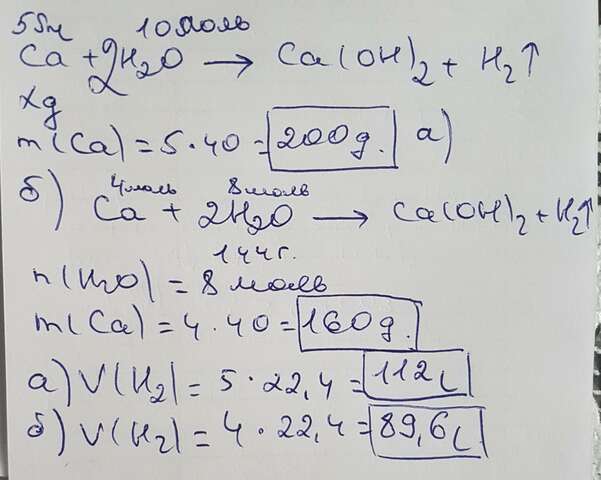 10 моль
Ca + 2H2O → Ca(OH)2 + H2↑
xg
m(Ca) = 5·40 = 200g. а)
4моль 8моль
б) Ca + 2H2O → Ca(OH)2 + H2↑
144г.
n(H2O) = 8 моль
m(Ca) = 4·40 = 160g.
а) V(H2) = 5·22,4 = 112L
б) V(H2) = 4·22,4 = 89,6L